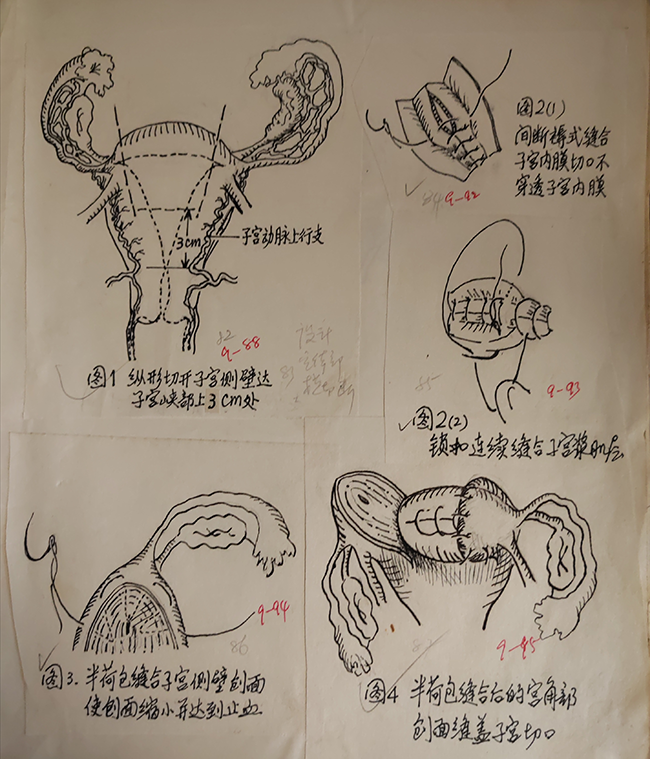 3cm
子宫动脉上行支
82
9-88
图1 纵形切开子宫侧壁达
子宫峡部上3cm处
图2(1)
间断褥式缝合
子宫内膜切口不
穿透子宫内膜
84
9-92
85
9-93
图2(2)
锁扣连续缝合子宫浆肌层
9-94
86
图3. 半荷包缝合子宫侧壁创面
使创面缩小并达到止血
9-95
图4 半荷包缝合后的宫角部
创面缝盖子宫切口